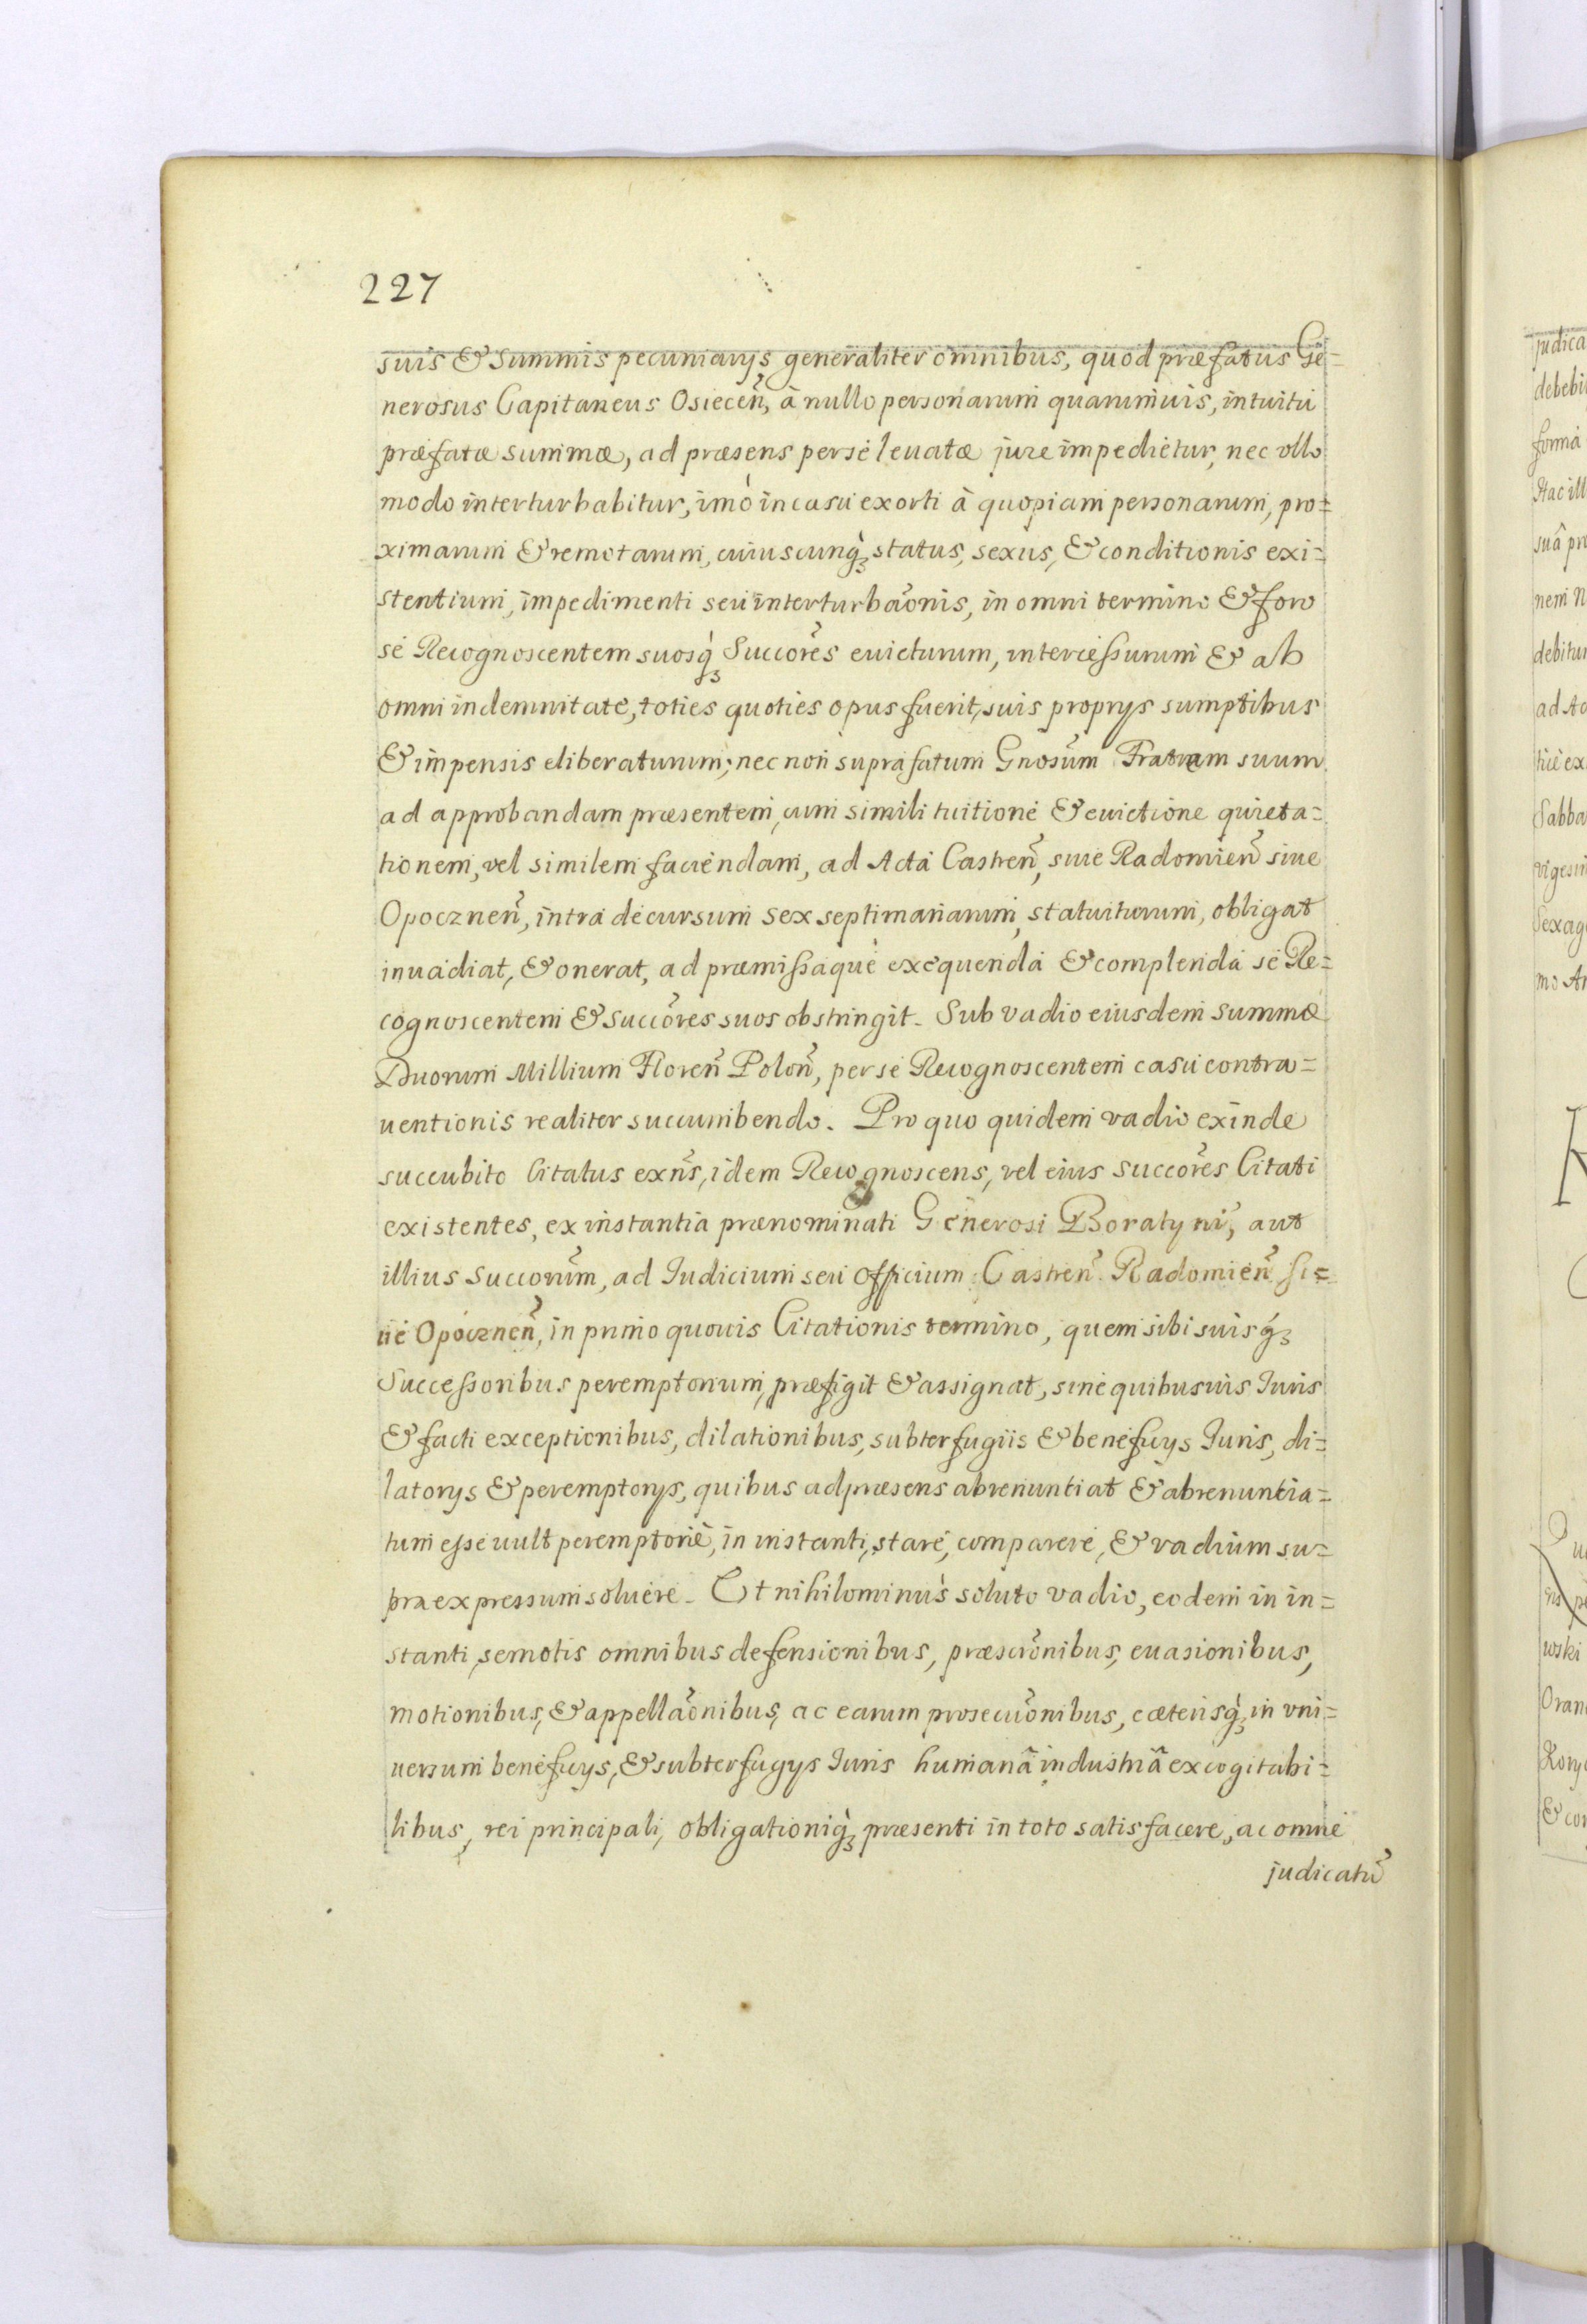 227
suis & Summis pecuniarijs generaliter omnibus, quod præfatus Ge=
nerosus Capitaneus Osiecen̄, à nullo personarum quarumuis, intuitu
præfatæ summæ, ad præsens per se leuatæ jure impedietur, nec vllo
modo interturbabitur, imò in casu exorti à quopiam personarum, pro=
ximarum & remotarum, cuiuscunq̀ꝫ status, sexus, & conditionis exi=
stentium, impedimenti seu interturbaōnis, in omni termino & foro
se Recognoscentem suosq̀ꝫ Succōres euicturum, intercessurum & ab
omni indemnitate, toties quoties opus fuerit, suis proprijs sumptibus
& impensis eliberaturum; nec non suprafatum Gnosūm Fratrem suum
ad approbandam præsentem, cum simili tuitione & euictione quieta=
tionem, vel similem faciendam, ad Acta Castren̄, siue Radomien̄ siue
Opocznen̄, intra decursum sex septimanarum, statuiturum, obligat
inuadiat, & onerat, ad præmissaque exequenda & complenda se Re=
cognoscentem & succōres suos obstringit. Sub vadio eiusdem summæ
Duorum Millium Floren̄ Polon̄, per se Recognoscentem casu contra=
uentionis realiter succumbendo. Pro quo quidem vadio exinde
succubito Citatus exn̄s, idem Recognoscens, vel eius succōres Citati
existentes, ex instantia prænominati Generosi Boratyni, aut
illius Succorūm, ad Iudicium seu Officium Castren̄ Radomien̄ si=
ue Opocznen̄, in primo quouis Citationis termino, quem sibi suisq́ꝫ
Successoribus peremptorium, præfigit & assignat, sine quibusuis Iuris
& facti exceptionibus, dilationibus, subterfugiis & beneficijs Iuris, di=
latorijs & peremptorijs, quibus ad præsens abrenuntiat & abrenuntia=
tum esse uult peremptoriè, in instanti, stare, comparere, & vadium su=
pra expressum soluere. Et nihilominùs soluto vadio, eodem in in=
stanti, semotis omnibus defensionibus, præscrīonibus, euasionibus,
motionibus, & appellaōnibus, ac earum prosecuōnibus, cæterisq̀ꝫ in vni=
uersum beneficijs, & subterfugijs Iuris humanâ industriâ excogitabi=
libus, rei principali, obligationiq̀ꝫ præsenti in toto satisfacere, ac omne
judicatū